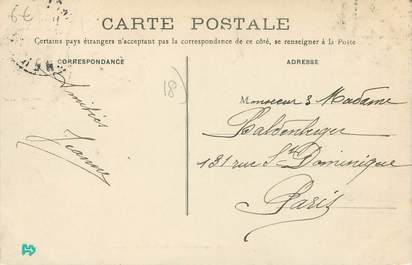 6€
CARTE POSTALE
Certains pays étrangers n'acceptant pas la correspondance de ce côté, se renseigner à la Poste
CORRESPONDANCE
ADRESSE
Amitiés
Jeanne
(18)
Monsieur & Madame
Haldenberger
131 rue St Dominique
Paris